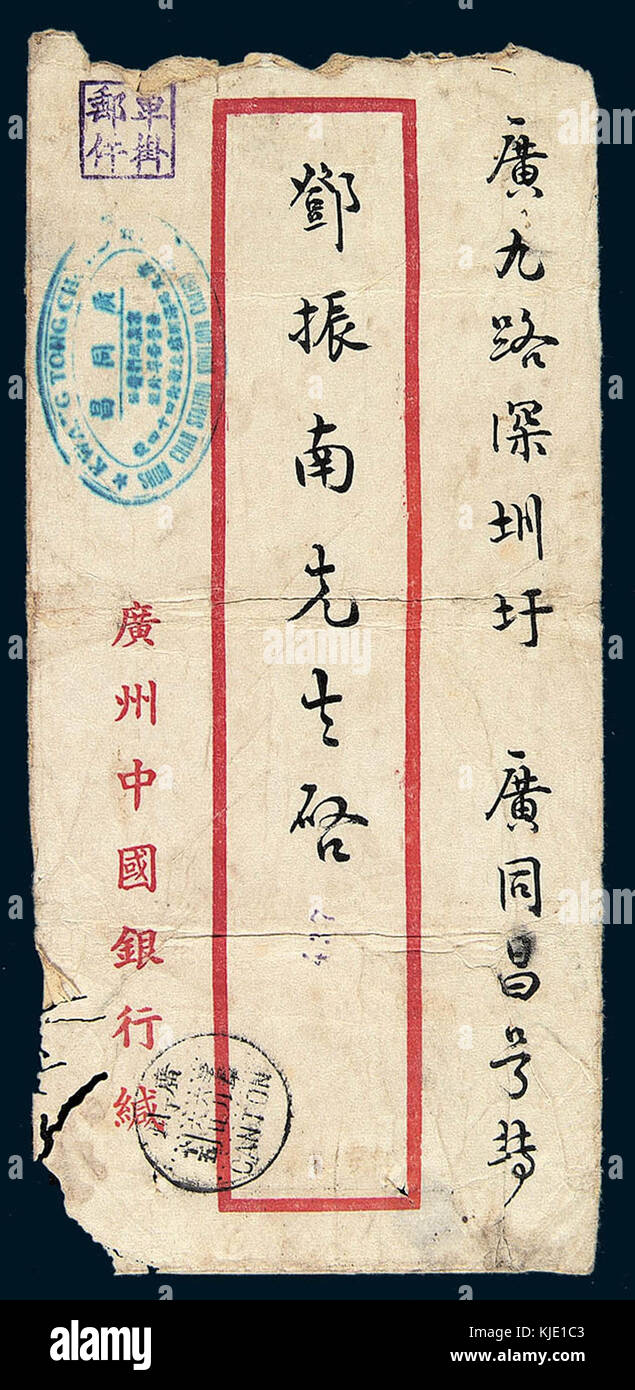 廣九路深圳圩 廣同昌号轉
鄧振南先生啓
廣州中國銀行緘
單掛
郵件
KWANG TONG CH
SHUM CHAN STATION
廣同昌
437
CANTON
alamy
Image ID: KJE1C3
www.alamy.com